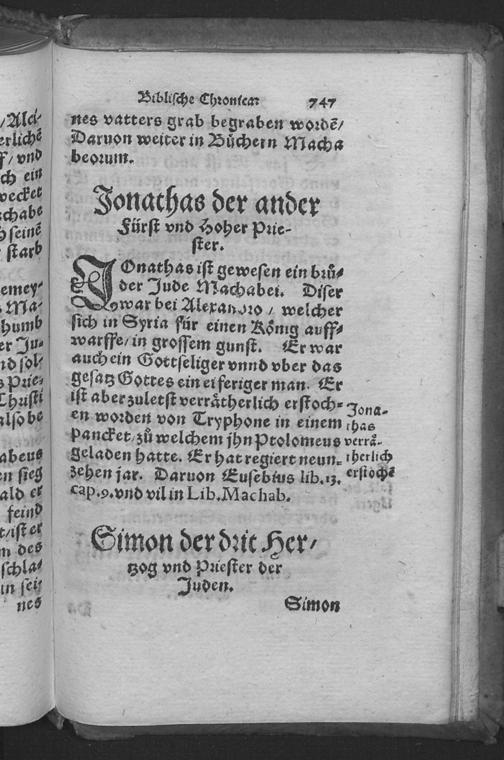 /Alci⸗
erlichē
f/ vnd
ch ein
wecket
schabe
h seinē
starb
emey⸗
Ma⸗
humb
er Ju⸗
nd sol⸗
s Prie⸗
Christi
also be
abeus
en sieg
ald er
feind
t/ ist er
m des
schla⸗
in sei⸗
nes
Biblische Chronica. 747
nes vatters grab begraben wordē/
Daruon weiter in Büchern Macha
beorum.
Jonathas der ander
Fürst vnd Hoher Prie⸗
ster.
JOnathas ist gewesen ein brů⸗
der Jude Machabei. Diser
war bei Alexandro / welcher
sich in Syria für einen König auff⸗
warffe/ in grossem gunst. Er war
auch ein Gottseliger vnnd vber das
gesatz Gottes ein eiferiger man. Er
ist aber zuletst verrätherlich erstoch⸗
en worden von Tryphone in einem
pancket/ zů welchem jhn Ptolomeus
geladen hatte. Er hat regiert neun⸗
zehen jar. Daruon Eusebius lib. 13.
cap. 9. vnd vil in Lib. Machab.
Jona⸗
thas
verrä⸗
therlich
erstochē
Simon der drit Her⸗
tzog vnd Priester der
Juden.
Simon